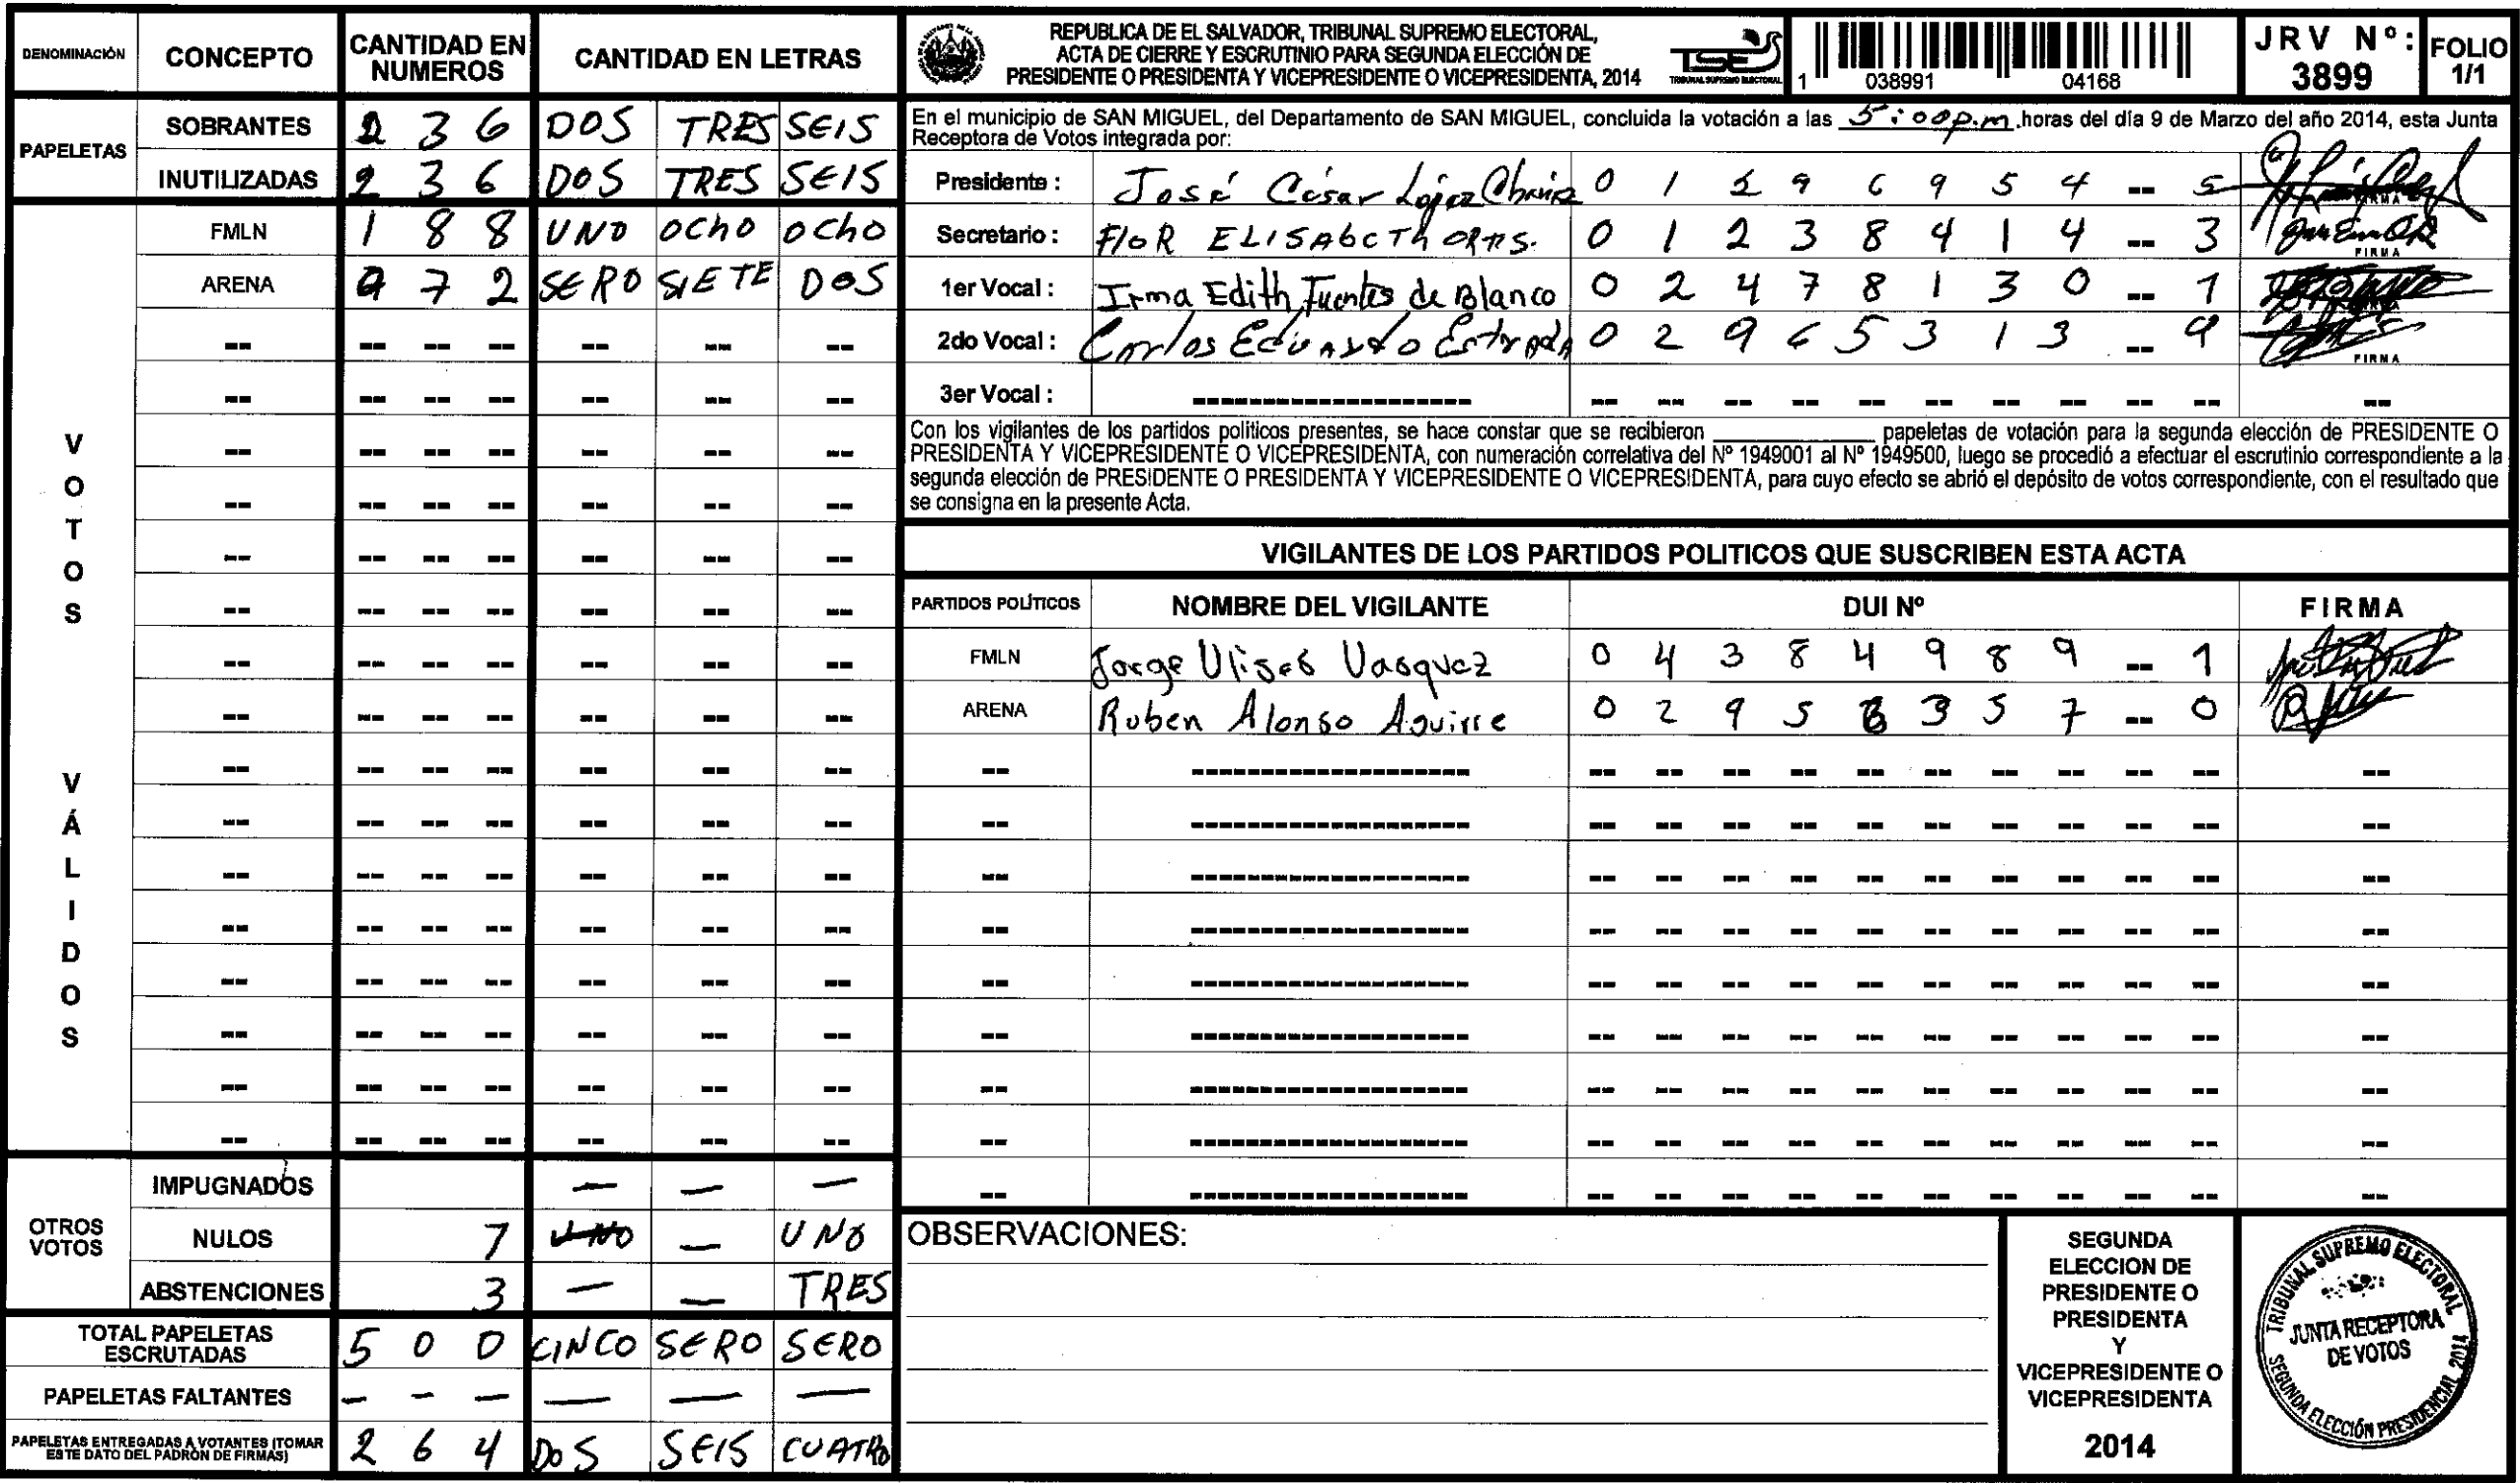 DENOMINACIÓN CONCEPTO CANTIDAD EN NUMEROS CANTIDAD EN LETRAS
PAPELETAS
SOBRANTES 2 3 6 DOS TRES SEIS
INUTILIZADAS 2 3 6 DOS TRES SEIS
VOTOS VÁLIDOS
FMLN 1 8 8 UNO OCHO OCHO
ARENA 0 7 2 SERO SIETE DOS
OTROS VOTOS
IMPUGNADOS — — —
NULOS 7 UNO — UNO
ABSTENCIONES 3 — — TRES
TOTAL PAPELETAS ESCRUTADAS 5 0 0 CINCO SERO SERO
PAPELETAS FALTANTES — — — — — —
PAPELETAS ENTREGADAS A VOTANTES (TOMAR ESTE DATO DEL PADRÓN DE FIRMAS) 2 6 4 DOS SEIS CUATRO
REPUBLICA DE EL SALVADOR, TRIBUNAL SUPREMO ELECTORAL,
ACTA DE CIERRE Y ESCRUTINIO PARA SEGUNDA ELECCIÓN DE
PRESIDENTE O PRESIDENTA Y VICEPRESIDENTE O VICEPRESIDENTA, 2014
TSE
TRIBUNAL SUPREMO ELECTORAL
1 038991 04168
JRV Nº: 3899
FOLIO 1/1
En el municipio de SAN MIGUEL, del Departamento de SAN MIGUEL, concluida la votación a las 5:00p.m. horas del día 9 de Marzo del año 2014, esta Junta
Receptora de Votos integrada por:
Presidente : José César López 0 1 9 6 9 5 4 -- 5
Secretario : FloR ELISAbCTh 0 1 2 3 8 4 1 4 -- 3 FIRMA
1er Vocal : Irma Edith Fuentes de Blanco 0 2 4 7 8 1 3 0 -- 1
2do Vocal : Carlos Eduardo Estrada 0 2 9 6 5 3 1 3 -- 9 FIRMA
3er Vocal :
Con los vigilantes de los partidos politicos presentes, se hace constar que se recibieron ____________ papeletas de votación para la segunda elección de PRESIDENTE O
PRESIDENTA Y VICEPRESIDENTE O VICEPRESIDENTA, con numeración correlativa del Nº 1949001 al Nº 1949500, luego se procedió a efectuar el escrutinio correspondiente a la
segunda elección de PRESIDENTE O PRESIDENTA Y VICEPRESIDENTE O VICEPRESIDENTA, para cuyo efecto se abrió el depósito de votos correspondiente, con el resultado que
se consigna en la presente Acta.
VIGILANTES DE LOS PARTIDOS POLITICOS QUE SUSCRIBEN ESTA ACTA
PARTIDOS POLÍTICOS NOMBRE DEL VIGILANTE DUI Nº FIRMA
FMLN Jorge Ulises Vasquez 0 4 3 8 4 9 8 9 -- 1
ARENA Ruben Alonso Aguirre 0 2 9 5 8 3 5 7 -- 0
OBSERVACIONES:
SEGUNDA
ELECCION DE
PRESIDENTE O
PRESIDENTA
Y
VICEPRESIDENTE O
VICEPRESIDENTA
2014
TRIBUNAL SUPREMO ELECTORAL
JUNTA RECEPTORA
DE VOTOS
SEGUNDA ELECCIÓN PRESIDENCIAL 2014